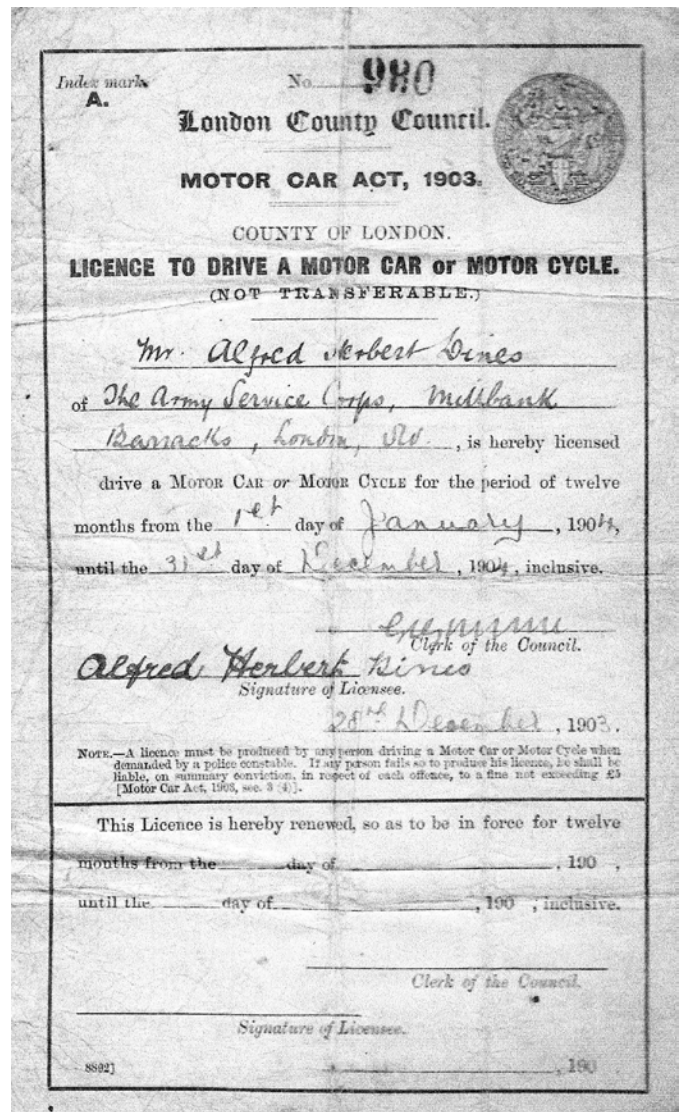 Index mark
A.
No. 980
London County Council.
MOTOR CAR ACT, 1903.
COUNTY OF LONDON.
LICENCE TO DRIVE A MOTOR CAR or MOTOR CYCLE.
(NOT TRANSFERABLE.)
Mr. Alfred Herbert Dines
of The Army Service Corps, Millbank
Barracks, London, , is hereby licensed
drive a MOTOR CAR or MOTOR CYCLE for the period of twelve
months from the 1st day of January, 1904,
until the 31st day of December, 1904, inclusive.
Clerk of the Council.
Alfred Herbert Dines
Signature of Licensee.
28th December, 1903.
NOTE.—A licence must be produced by any person driving a Motor Car or Motor Cycle when
demanded by a police constable. If any person fails so to produce his licence, he shall be
liable, on summary conviction, in respect of each offence, to a fine not exceeding £5
[Motor Car Act, 1903, sec. 3 (4)].
This Licence is hereby renewed, so as to be in force for twelve
months from the day of , 190 ,
until the day of , 190 , inclusive.
Clerk of the Council.
Signature of Licensee.
8892]
, 190